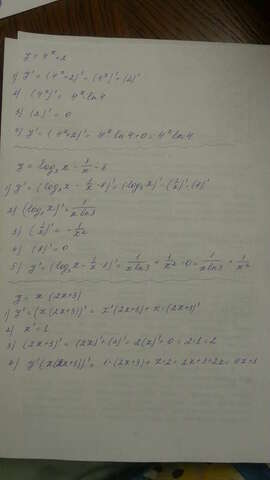 y = 4^x + 2
1) y' = (4^x + 2)' = (4^x)' + (2)'
2) (4^x)' = 4^x ln4
3) (2)' = 0
4) y' = (4^x + 2)' = 4^x ln4 + 0 = 4^x ln4
y = log₃x - 1/x - 8
1) y' = (log₃x - 1/x - 8)' = (log₃x)' - (1/x)' - (8)'
2) (log₃x)' = 1/(x ln3)
3) (1/x)' = -1/x²
4) (8)' = 0
5) y' = (log₃x - 1/x - 8)' = 1/(x ln3) + 1/x² - 0 = 1/(x ln3) + 1/x²
y = x · (2x+3)
1) y' = (x(2x+3))' = x'(2x+3) + x · (2x+3)'
2) x' = 1
3) (2x+3)' = (2x)' + (3)' = 2(x)' + 0 = 2·1 = 2